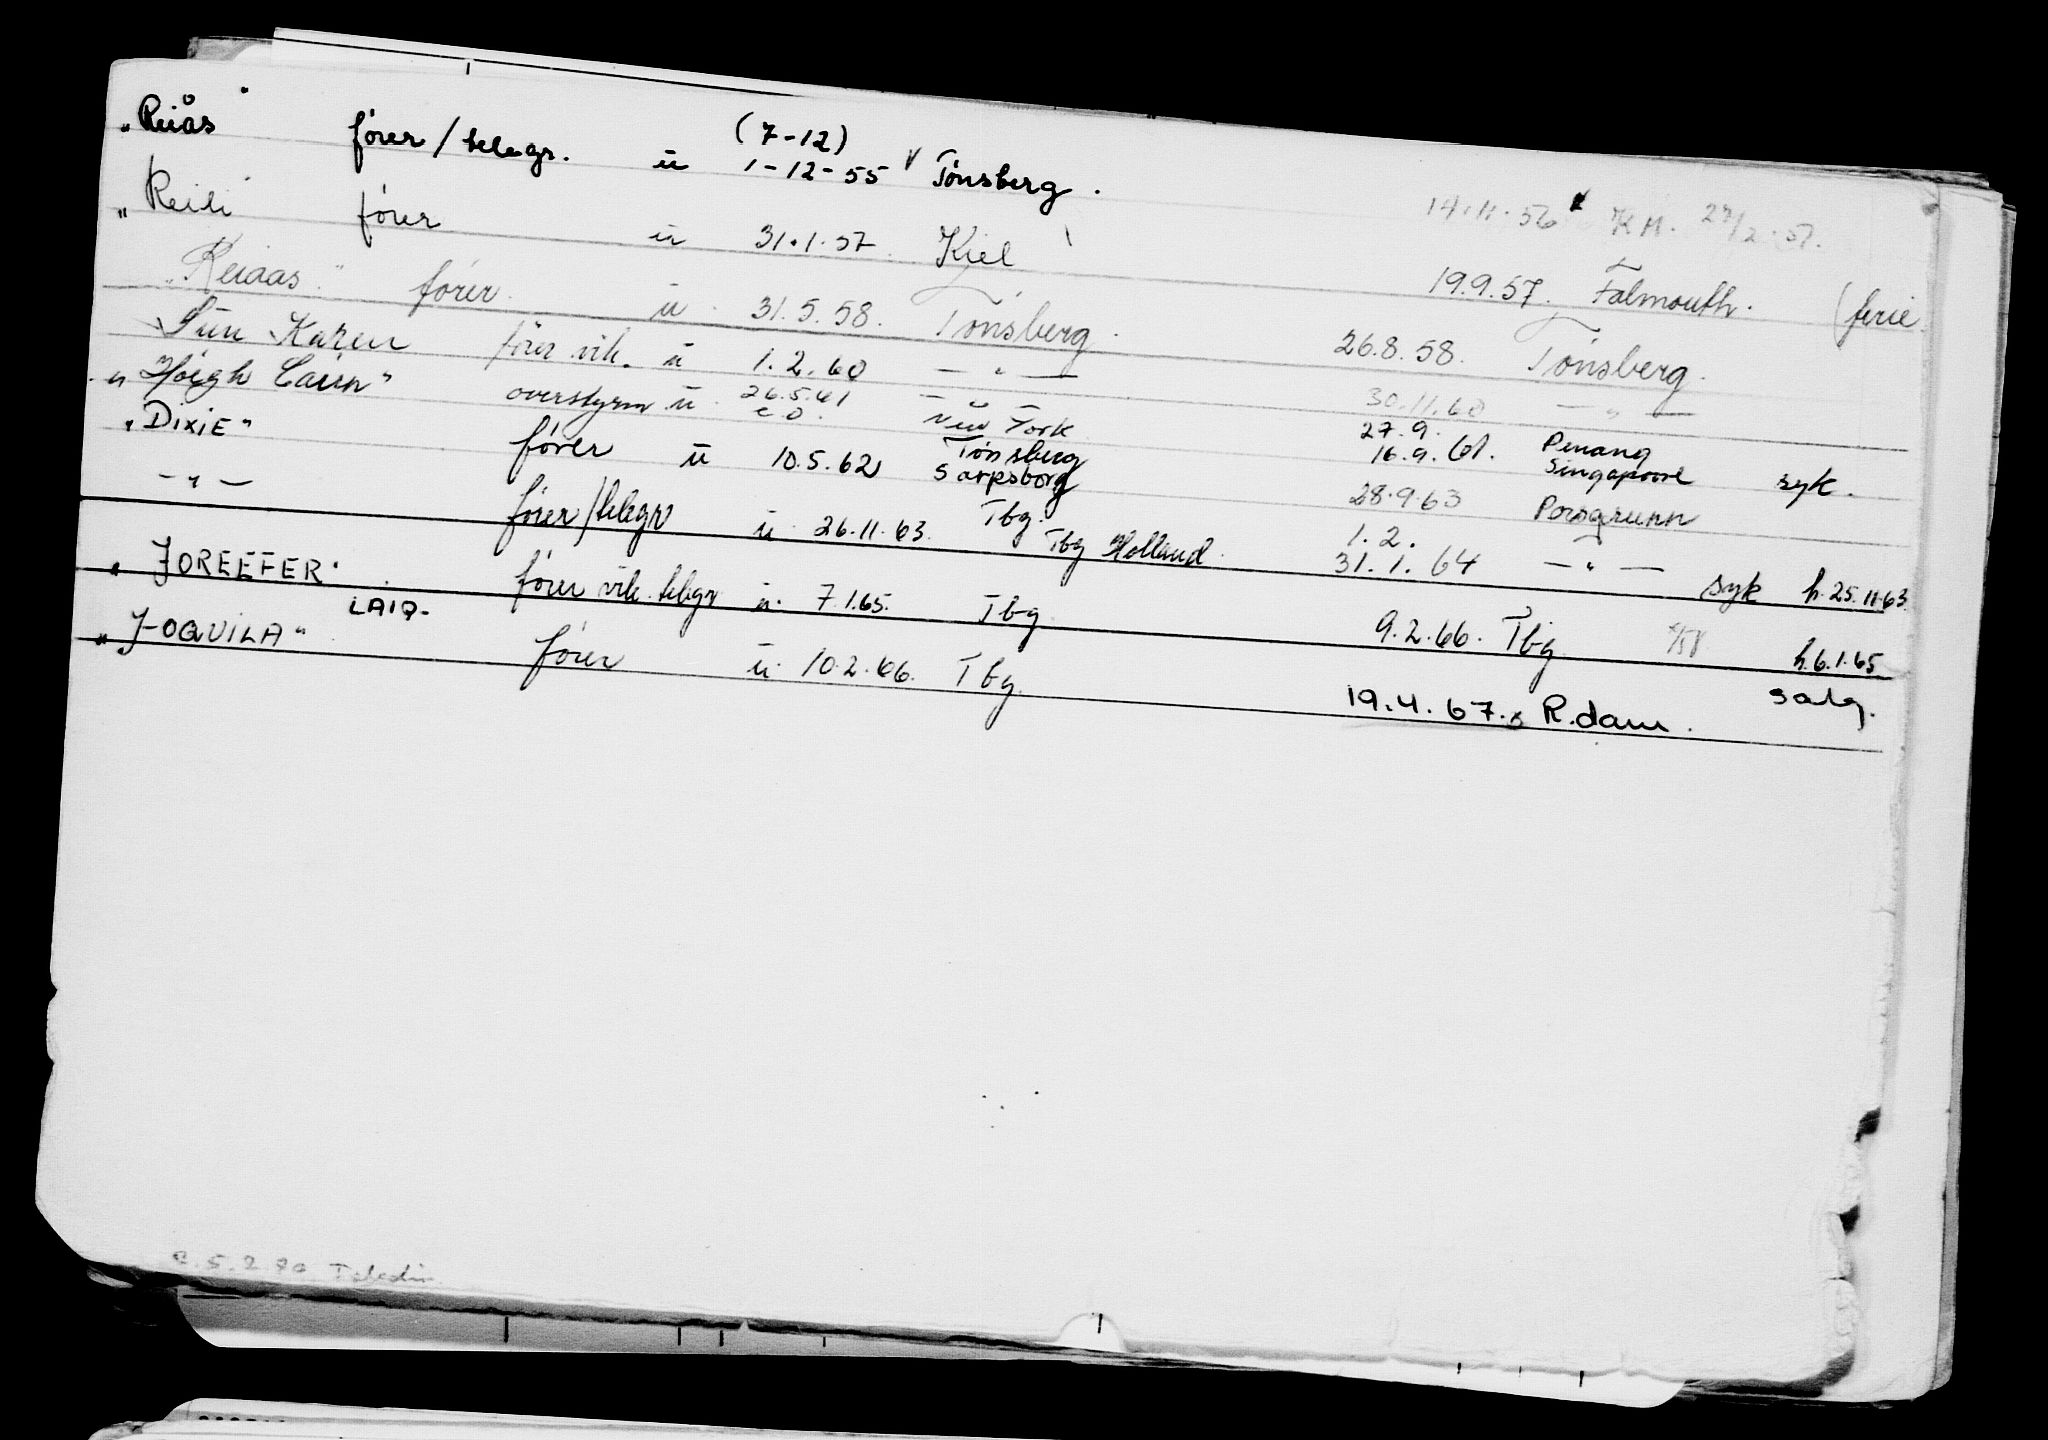 "Reiås" fører/telegr. ū (7-12) 1-12-55 Tønsberg. 14.11.56 KM. 27/2.57.
"Reili" fører ū 31.1.57 Kiel 19.9.57. Falmouth. (ferie.
"Reiaas" fører ū 31.5.58. Tønsberg. 26.8.58. Tønsberg.
Sun Karen fører vik. ū 1.2.60 — " — 30.11.60 — " —
"Høigh Cairn" overstyrm ū 26.5.61 New York 27.9. Penang
16.9.61. Singapoore syk.
"DIXIE" fører ū 10.5.62 Tønsberg Sarpsborg 28.9.63 Porsgrunn
— " — fører/telegr ū 26.11.63. Tbg. Tbg Holland. 1.2. 31.1.64 — " — syk h.25.11.63
"JOREEFER" fører vik. telegr ū. 7.1.65. Tbg 9.2.66. Tbg h.6.1.65
"J-OQUILA" LAIQ- fører ū. 10.2.66. Tbg. 19.4.67. R.dam. salg.
5.2.